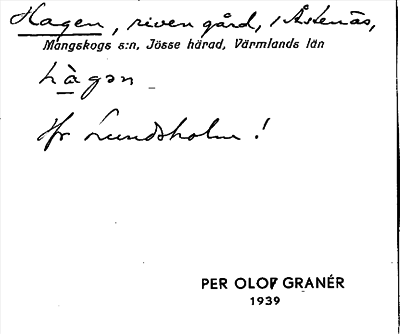 Hagen, riven gård, i Åstenäs,
Mangskogs s:n, Jösse härad, Värmlands län
hàgən
Hr Lundsholm!
PER OLOF GRANÉR
1939